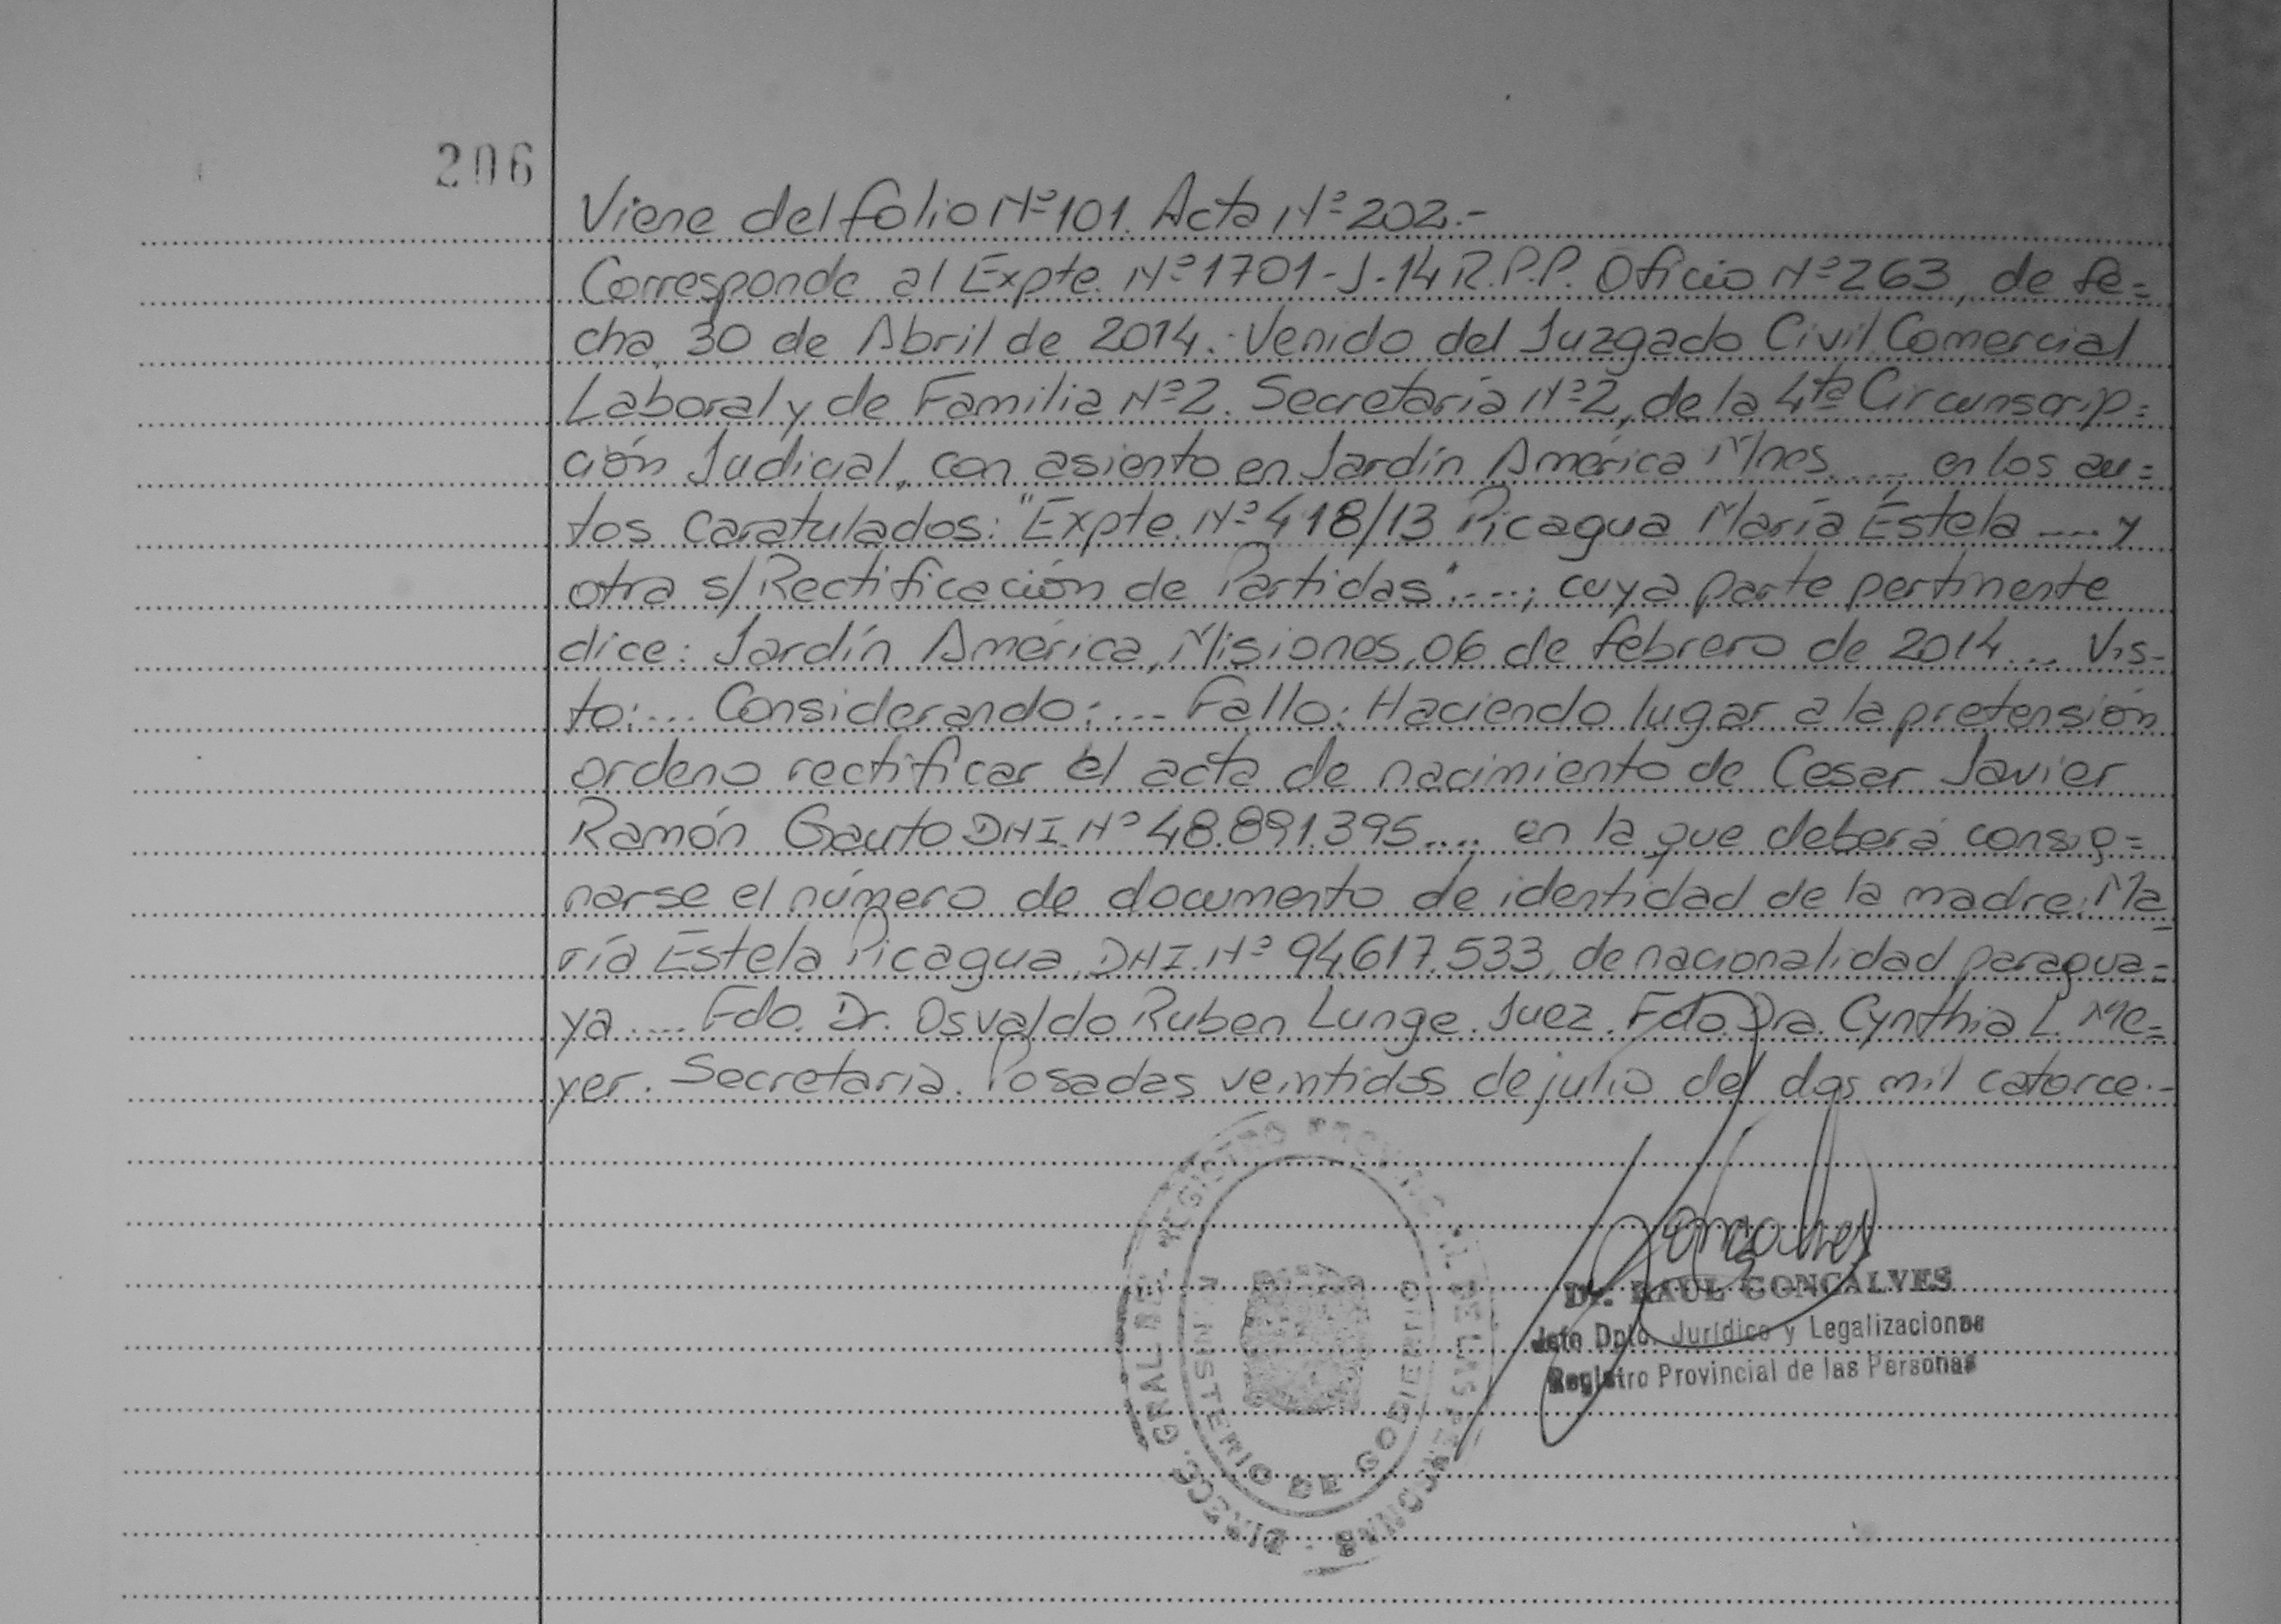 206
Viene del folio Nº 101. Acta Nº 202.-
Corresponde al Expte. Nº 1701-J-14 R.P.P. Oficio Nº 263, de fe=
cha, 30 de Abril de 2014.- Venido del Juzgado Civil Comercial
Laboral y de Familia Nº 2. Secretaría Nº 2, de la 4ta Circunscrip=
ción Judicial, con asiento en Jardín América Mnes....., en los au=
tos Caratulados: "Expte. Nº 418/13 Picagua María Estela .... y
otra s/ Rectificación de Partidas"....; cuya parte pertinente
dice: Jardín América, Misiones, 06 de febrero de 2014.... Vis-
to:.... Considerando:.... Fallo: Haciendo lugar a la pretensión
ordeno rectificar el acta de nacimiento de Cesar Javier
Ramón Gauto DNI. Nº 48.891.395.... en la que deberá consig=
narse el número de documento de identidad de la madre: Ma_
ría Estela Picagua, DNI. Nº 94.617.533, de nacionalidad paragua=
ya..... Fdo. Dr. Osvaldo Ruben Lunge. Juez. Fdo. Dra. Cynthia L. Me=
yer. Secretaria. Posadas veintidos de julio del dos mil catorce.-
DIRECC. GRAL. DEL REGISTRO PROVINCIAL DE LAS PERSONAS
MINISTERIO DE GOBIERNO
Goncalves
Dr. RAUL GONCALVES
Jefe Dpto. Jurídico y Legalizaciones
Registro Provincial de las Personas